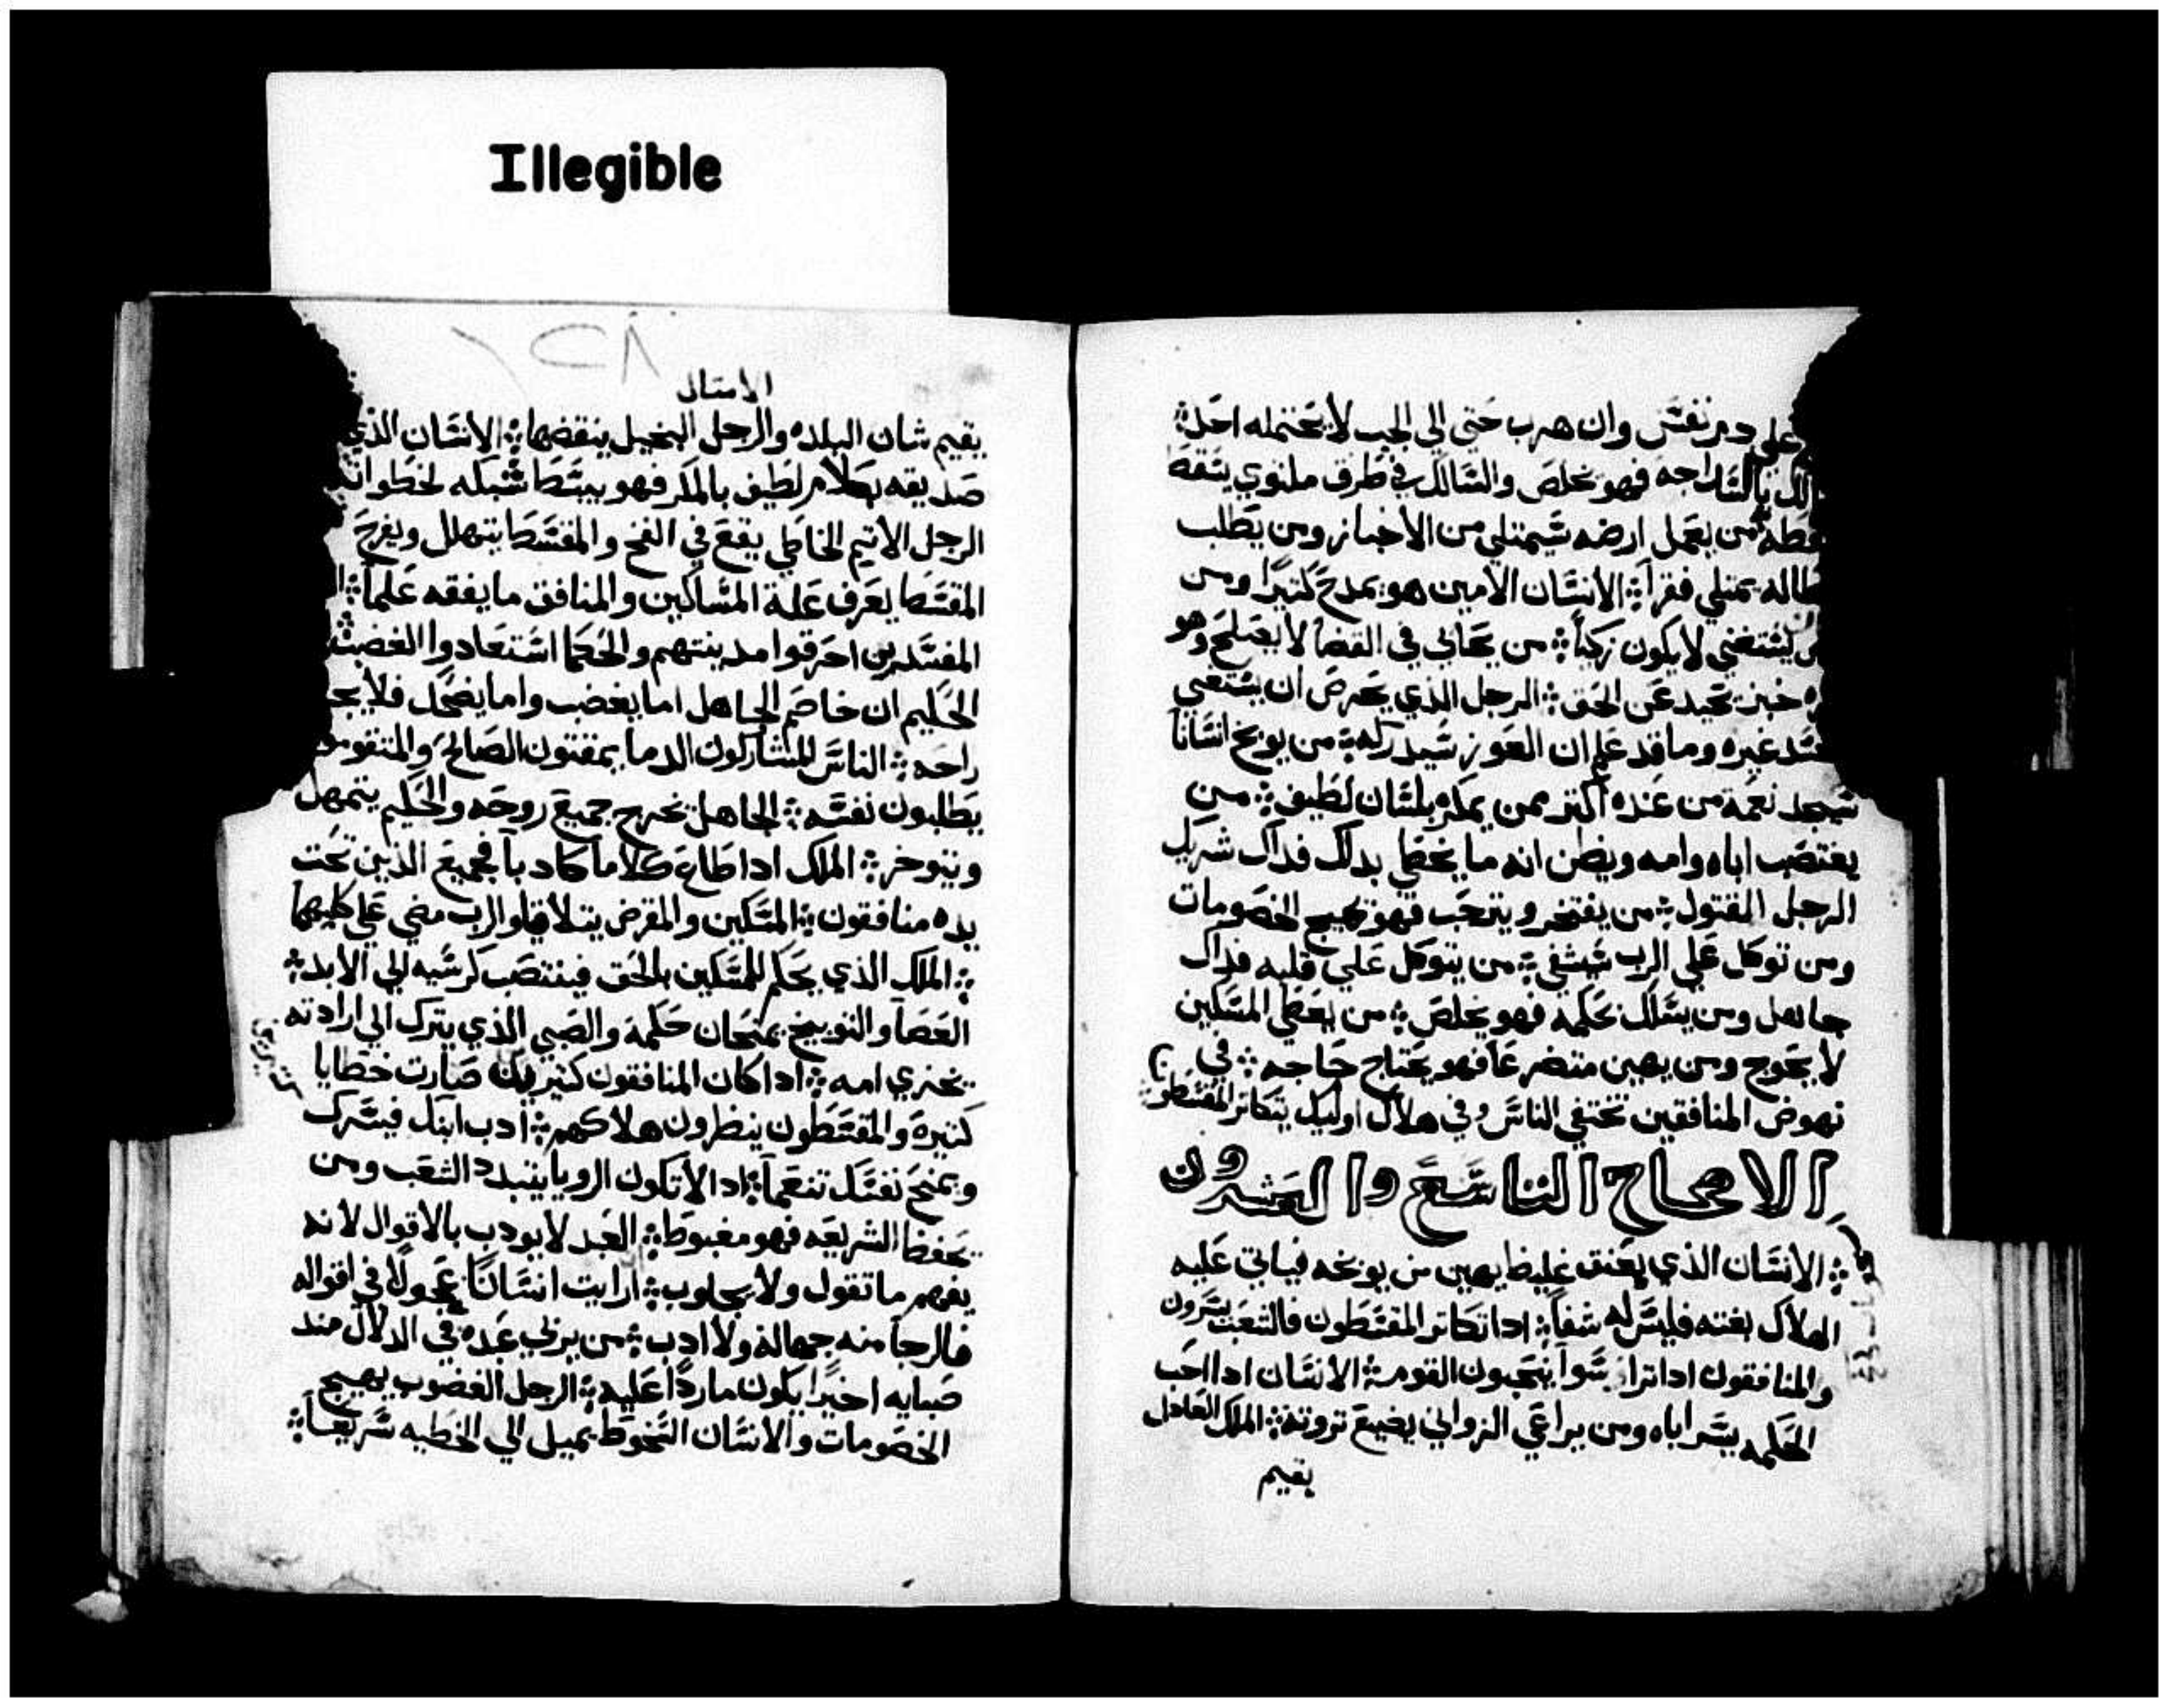 Illegible
على دم نفس وان هرب حتي الي الجب لا يحتمله احد
بالسداجه فهو يخلص والسالك في طرق ملتوي يسقط
من يعمل ارضه سيمتلي من الاخباز ومن يطلب
يمتلي فقراً الانسان الامين هو يمدح كتيرًا ومن
يستغني لا يكون زكياً من يحابي في القضا لا يصلح وهو
خبز يحيد عن الحق الرجل الذي يحرص ان يستغني
غيره وما قد علم ان العوز سيدركه من يوبخ انساناً
سيجد نعمة من عنده اكتر ممن يمكر بلسان لطيف من
يغتصب اباه وامه ويظن انه ما يخطي بدلك فداك شريك
الرجل المقتول من يفتخر ويترحب فهو يهيج الخصومات
ومن توكل علي الرب سيشفي من يتوكل علي قلبه فداك
جاهل ومن يسلك بحكمه فهو يخلص من يعطي المسكين
لا يحوج ومن يهين متضرعاً فهو يحتاج حاجه في
نهوض المنافقين تختفي الناس وفي هلاك اوليك يتكاتر المقسطون
الاصحاح التاسع والعشرون
الانسان الذي بعنق غليظ يهين من يوبخه فياتي عليه
الهلاك بغته فليس له شفاً ادا تكاتر المقسطون فالشعب يسرون
والمنافقون ادا تراسوا ينتحبون القوم الانسان ادا احب
الحكمه يسر اباه ومن يراعي الزواني يضيع تروته الملك العادل
يقيم
الامتال
يقيم شان البلده والرجل البخيل ينقضها الانسان الذي
صديقه بكلام لطيف بالمكر فهو يبسط شبكه لخطواته
الرجل الاتيم الخاطي يقع في الفخ والمقسط يتهلل ويفرح
المقسط يعرف علة المساكين والمنافق ما يفقه علماً
المفسدين احرقوا مدينتهم والحكما استعادوا الغضب
الحكيم ان خاصم الجاهل اما يغضب واما يضحك فلا يجد
راحه الناس المشاركون الدما يمقتون الصالح والمتقومون
يطلبون نفسه الجاهل يخرج جميع روحه والحكيم يتمهل
ويتوخر الملك ادا طاع كلاما كادباً فجميع الذين تحت
يده منافقون المسكين والمقرض يتلاقيا والرب مضي علي كليهما
الملك الذي يحكم للمسكين بالحق فينتصب كرسيه الي الابد
العصا والتوبيخ يمنحان حكمة والصبي الذي يترك الي ارادته
يخزي امه ادا كان المنافقون كتيرين صارت خطايا
كتيرة والمقسطون ينظرون هلاكهم ادب ابنك فيسرك
ويمنح نفسك تنعماً ادا لا تكون الرويا يتبدد الشعب ومن
يحفظ الشريعه فهو مغبوط العبد لا يودب بالاقوال لانه
يفهم ما تقول ولا يجاوب ارايت انسانًا عجولًا في اقواله
فالرجا منه جهالة ولا ادب من يربي عبده في الدلال مند
صبايه اخيرًا يكون ماردًا عليه الرجل الغضوب يهيج
الخصومات والانسان السخوط يميل الي الخطيه سريعاً